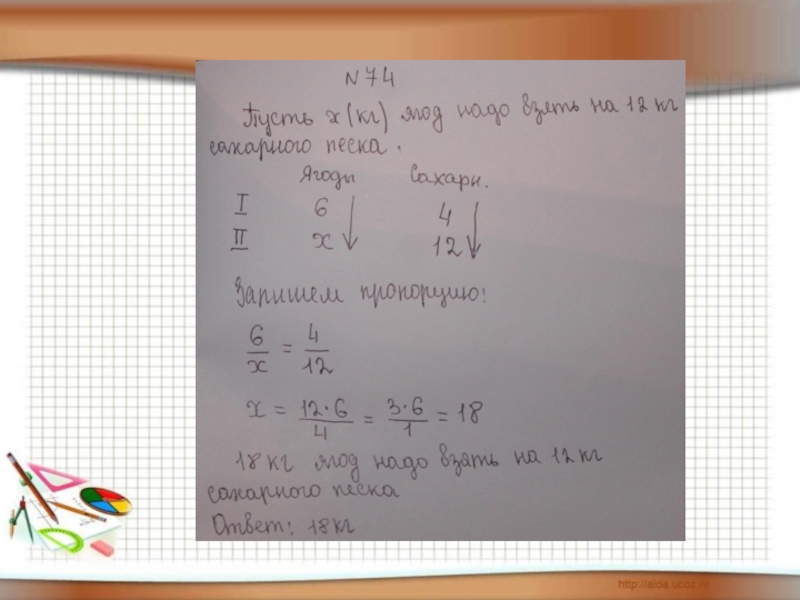 N 74
Пусть x (кг) ягод надо взять на 12 кг
сахарного песка.
Ягоды Сахарн.
I 6 4
II x 12
Запишем пропорцию:
6/x = 4/12
x = 12·6/4 = 3·6/1 = 18
18 кг ягод надо взять на 12 кг
сахарного песка
Ответ: 18 кг
http://aida.ucoz.ru